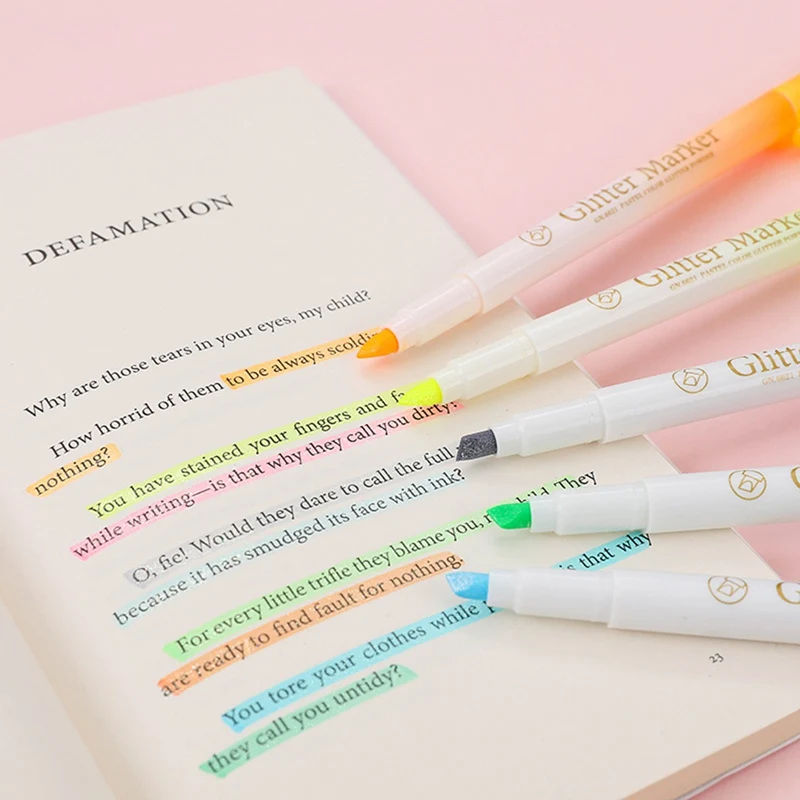 DEFAMATION
Why are those tears in your eyes, my child?
How horrid of them to be always
nothing?
You have stained your fingers and
while writing—is that why they call you dirty?
O, fie! Would they dare to call the full
because it has smudged its face with ink?
For every little trifle they blame you, They
are ready to find fault for nothing.
You tore your clothes while is that why
they call you untidy?
23
Glitter Marker
GN.0821 PASTEL COLOR GLITTER POWDER
Glitter Marker
GN.0821 PASTEL COLOR GLITTER